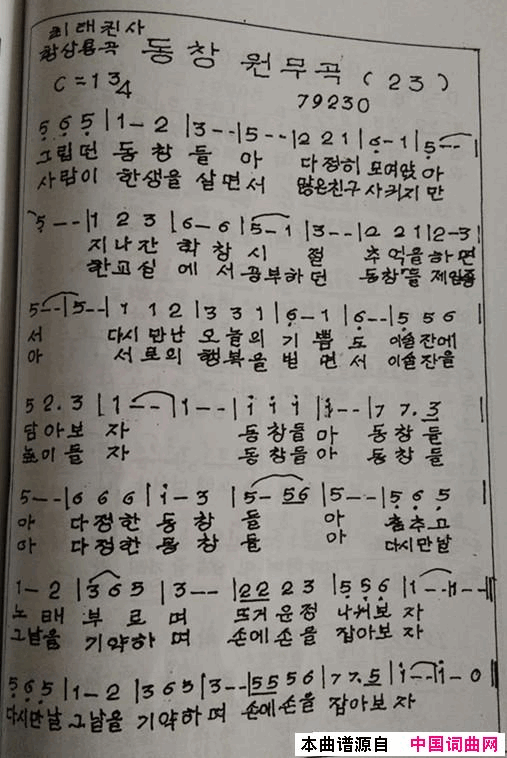 최태진사
황상용곡 동창 원무곡 (23)
C=1 3/4 79230
5 6 5 | 1 - 2 | 3 - - | 5 - - | 2 2 1 | 6 - 1 | 5 - -
그립던 동창들 아 다정히 모여앉아
사람이 한생을 살면서 많은친구 사귀지만
5 - - | 1 2 3 | 6 - 6 | 5 - 1 | 3 - - | 2 2 1 | 2 - 3 |
지나간 학창시절 추억을하면
한교실에서 공부하던 동창들 제일좋
5 - - | 5 - - | 1 1 2 | 3 3 1 | 6 - 1 | 6 - - | 5 5 6
서 다시만난 오늘의 기쁨도 이술잔에
아 서로의 행복을 빌면서 이술잔을
5 2. 3 | 1 - - | 1 - - | i i i | i - - | 7 7. 3 |
담아보자 동창들아 동창들
높이들자 동창들아 동창들
5 - - | 6 6 6 | i - 3 | 5 - 56 | 5 - - | 5 6 5 |
아 다정한 동창들 아 춤추고
아 다정한 동창들 아 다시만날
1 - 2 | 3 6 5 | 3 - - | 2 2 2 3 | 5 5 6 | 1 - - | 1 - - ||
노래 부르며 뜨거운정 나눠보자
그날을 기약하며 손에손을 잡아보자
5 6 5 | 1 - 2 | 3 6 5 | 3 - - | 5 5 5 6 | 7 7. 5 | i - - | i - 0 ||
다시만날 그날을 기약하며 손에손을 잡아보자
本曲谱源自 中国词曲网